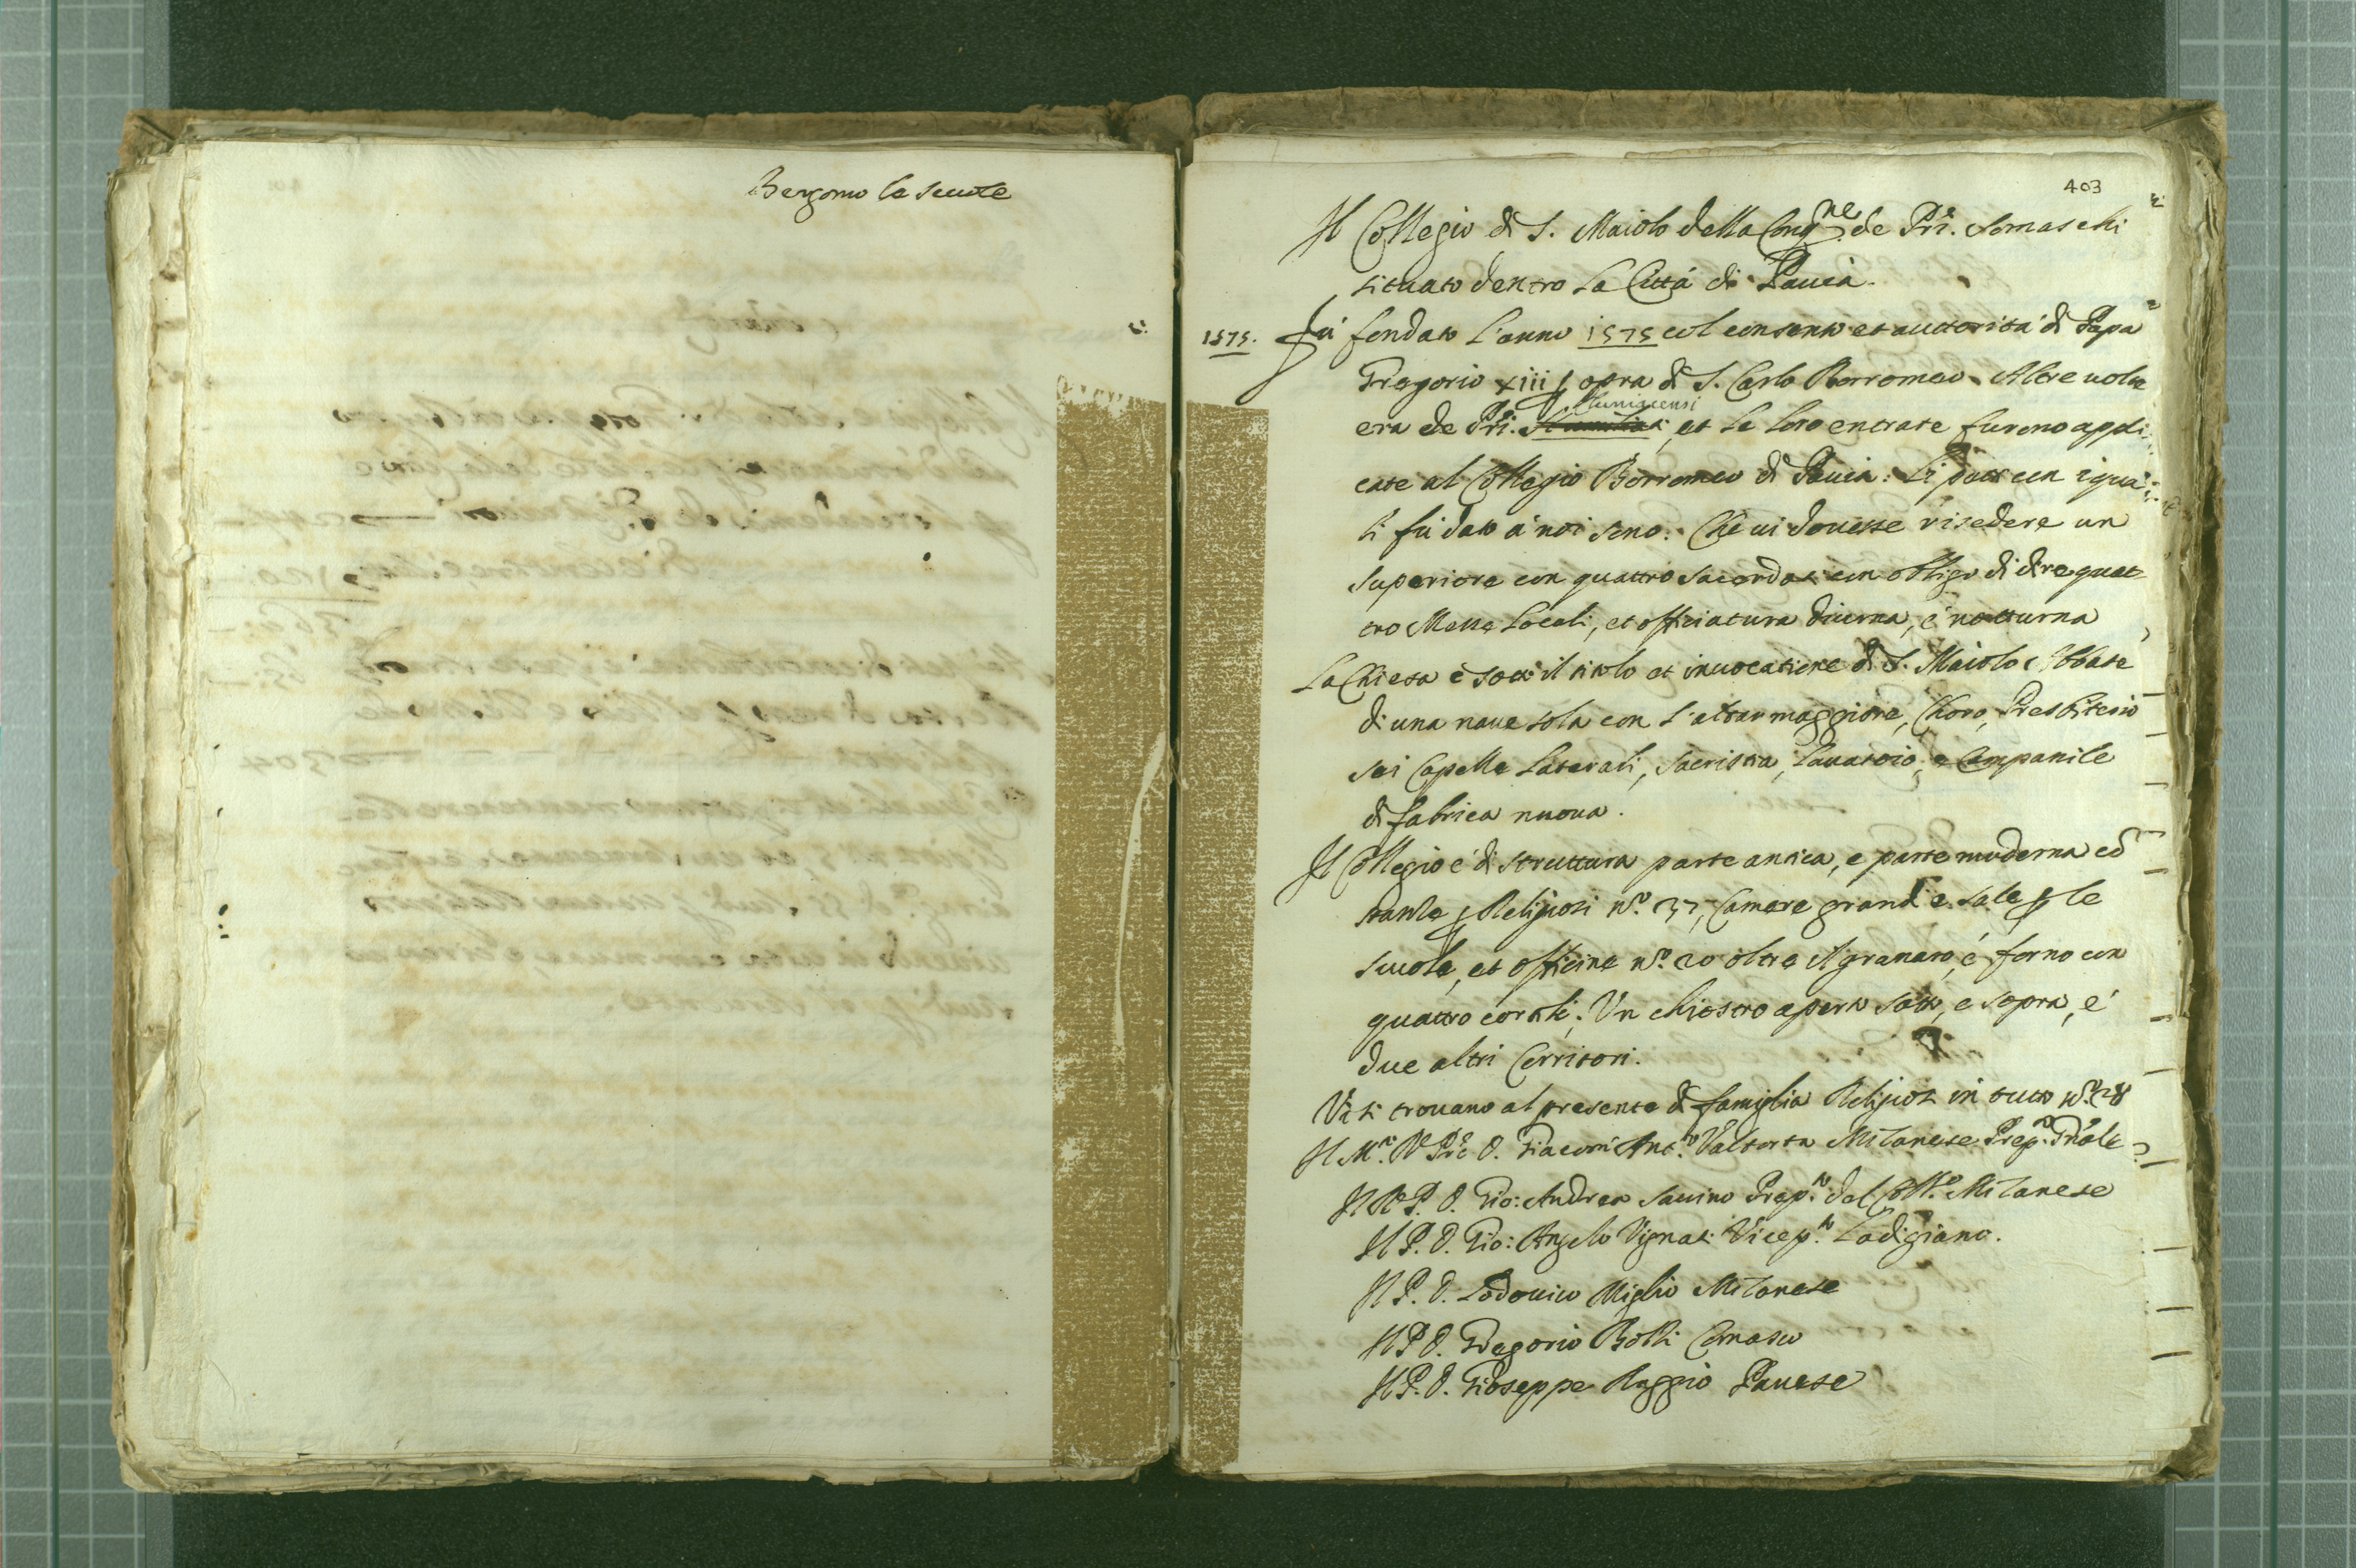 Bergomo le scuole
403
Il Collegio di S. Maiolo della Cong.ne de Pri. Somaschi
situato dentro la Città di Pauia.
1575. Fù fondato l'anno 1575 col consenso et auttorità di Papa
Gregorio xiii p opra di S. Carlo Borromeo. Altre uolte
era de Pri. Humiliati Cluniacensi, et le loro entrate furono appli
cate al Collegio Borromeo di Pauia: Li patti con i qua
li fù dato à noi sono: Che ui douesse risedere un
superiore con quattro sacerdoti con obligo di dire quat
tro Messe locali, et officiatura diurna, é notturna
La Chiesa è sotto il titolo et inuocatione di S. Maiolo Abbate
di una naue sola con l'altar maggiore, Choro, Presbiterio
sei Capelle laterali, sacristia, lauatoio, e Campanile
di fabrica nuoua.
Il Collegio é di struttura parte antica, e parte moderna cõ
stanze p Religiosi n.o 37, Camere grandi e sale p le
scuole, et officine n.o 20 oltre il granaro, é forno con
quattro cortili. Un chiostro aperto sotto, e sopra, é
due altri Corritori.
Vi si trouano al presente di famiglia Religiosi in tutto n.o 28
Il M.o R.do Pre D. Giacom Ant.o Valtorta Milanese Prep.to Gñale
Il R. P. D. Gio: Andrea Sauino Prep.to del Coll.o Milanese
Il P. D. Gio: Angelo Vignati Vicep.to Lodigiano.
Il P. D. Lodouico Miglio Milanese
Il P. D. Gregorio Bolli Comasco
Il P. D. Gioseppe Raggio Pauese